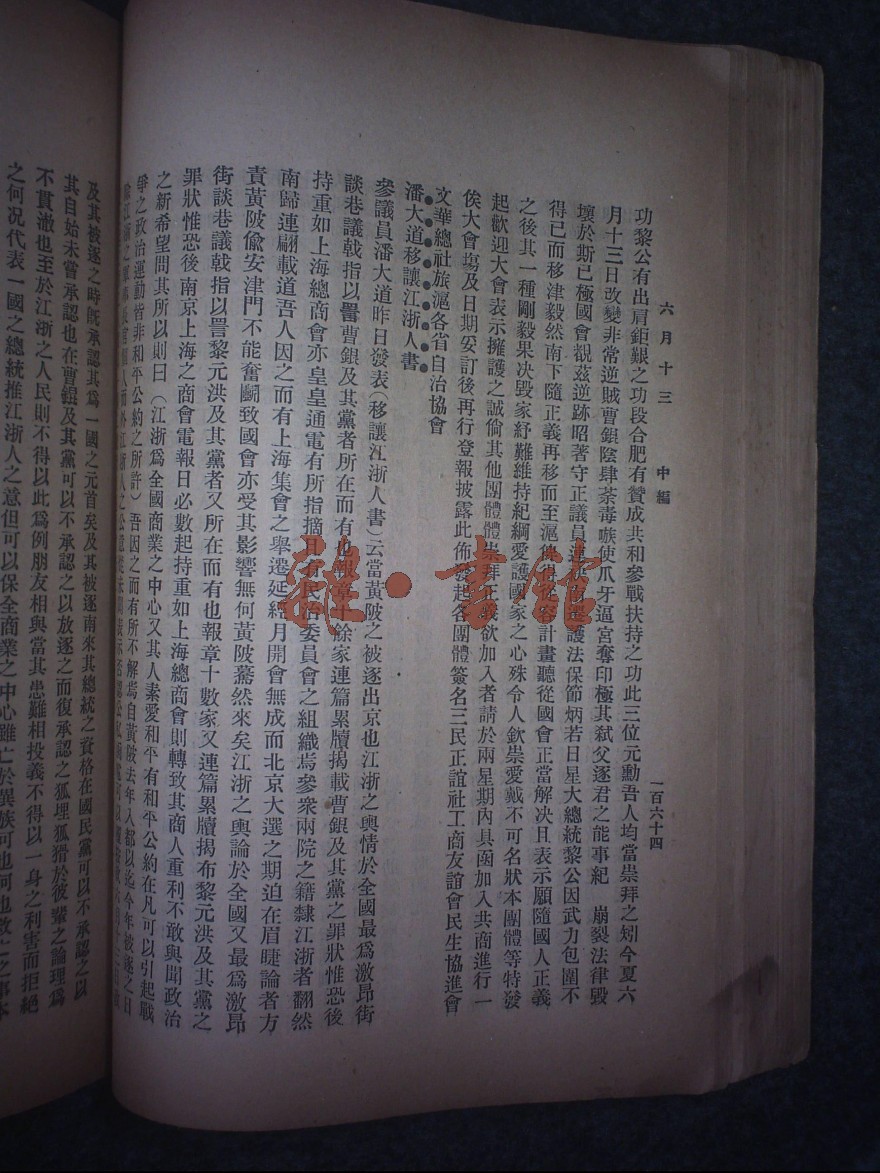 六月十三 中編 一百六十四
功黎公有出肩鉅艱之功段合肥有贊成共和參戰扶持之功此三位元勳吾人均當崇拜之矧今夏六
月十三日改變非常逆賊曹錕陰肆荼毒嗾使爪牙逼宮奪印極其弒父逐君之能事紀 崩裂法律毀
壞於斯已極國會覩茲逆跡昭著守正議員 護法保節炳若日星大總統黎公因武力包圍不
得已而移津毅然南下隨正義再移而至滬 計畫聽從國會正當解决且表示願隨國人正義
之後其一種剛毅果决毀家紓難維持紀綱愛護國家之心殊令人欽崇愛戴不可名狀本團體等特發
起歡迎大會表示擁護之誠倘其他團體體崇拜正義欲加入者請於兩星期內具函加入共商進行一
俟大會塲及日期妥訂後再行登報披露此佈發起各團體簽名三民正誼社工商友誼會民生協進會
文華總社旅滬各省自治協會
潘大道移讓江浙人書
參議員潘大道昨日發表(移讓江浙人書)云當黃陂之被逐出京也江浙之輿情於全國最爲激昂街
談巷議戟指以詈曹錕及其黨者所在而有也報章十餘家連篇累牘揭載曹錕及其黨之罪狀惟恐後
持重如上海總商會亦皇皇通電有所指摘且有民治委員會之組織焉參衆兩院之籍隸江浙者翻然
南歸連翩載道吾人因之而有上海集會之舉遷延經月開會無成而北京大選之期迫在眉睫論者方
責黃陂偸安津門不能奮鬭致國會亦受其影響無何黃陂驀然來矣江浙之輿論於全國又最爲激昂
街談巷議戟指以詈黎元洪及其黨者又所在而有也報章十數家又連篇累牘揭布黎元洪及其黨之
罪狀惟恐後南京上海之商會電報日必數起持重如上海總商會則轉致其商人重利不敢與聞政治
之新希望問其所以則曰(江浙爲全國商業之中心又其人素愛和平有和平公約在凡可以引起戰
爭之政治運動皆非和平公約之所許)吾因之而有所不解焉自黃陂去年入都以迄今年被逐之日
及其被逐之時旣承認其爲一國之元首矣及其被逐南來其總統之資格在國民黨可以不承認之以
其自始未嘗承認也在曹錕及其黨可以不承認之以放逐之而復承認之狐埋狐搰於彼輩之論理爲
不貫澈也至於江浙之人民則不得以此爲例朋友相與當其患難相投義不得以一身之利害而拒絕
之何况代表一國之總統推江浙人之意但可以保全商業之中心雖亡於異族可也何也救亡之事本
雜·書館